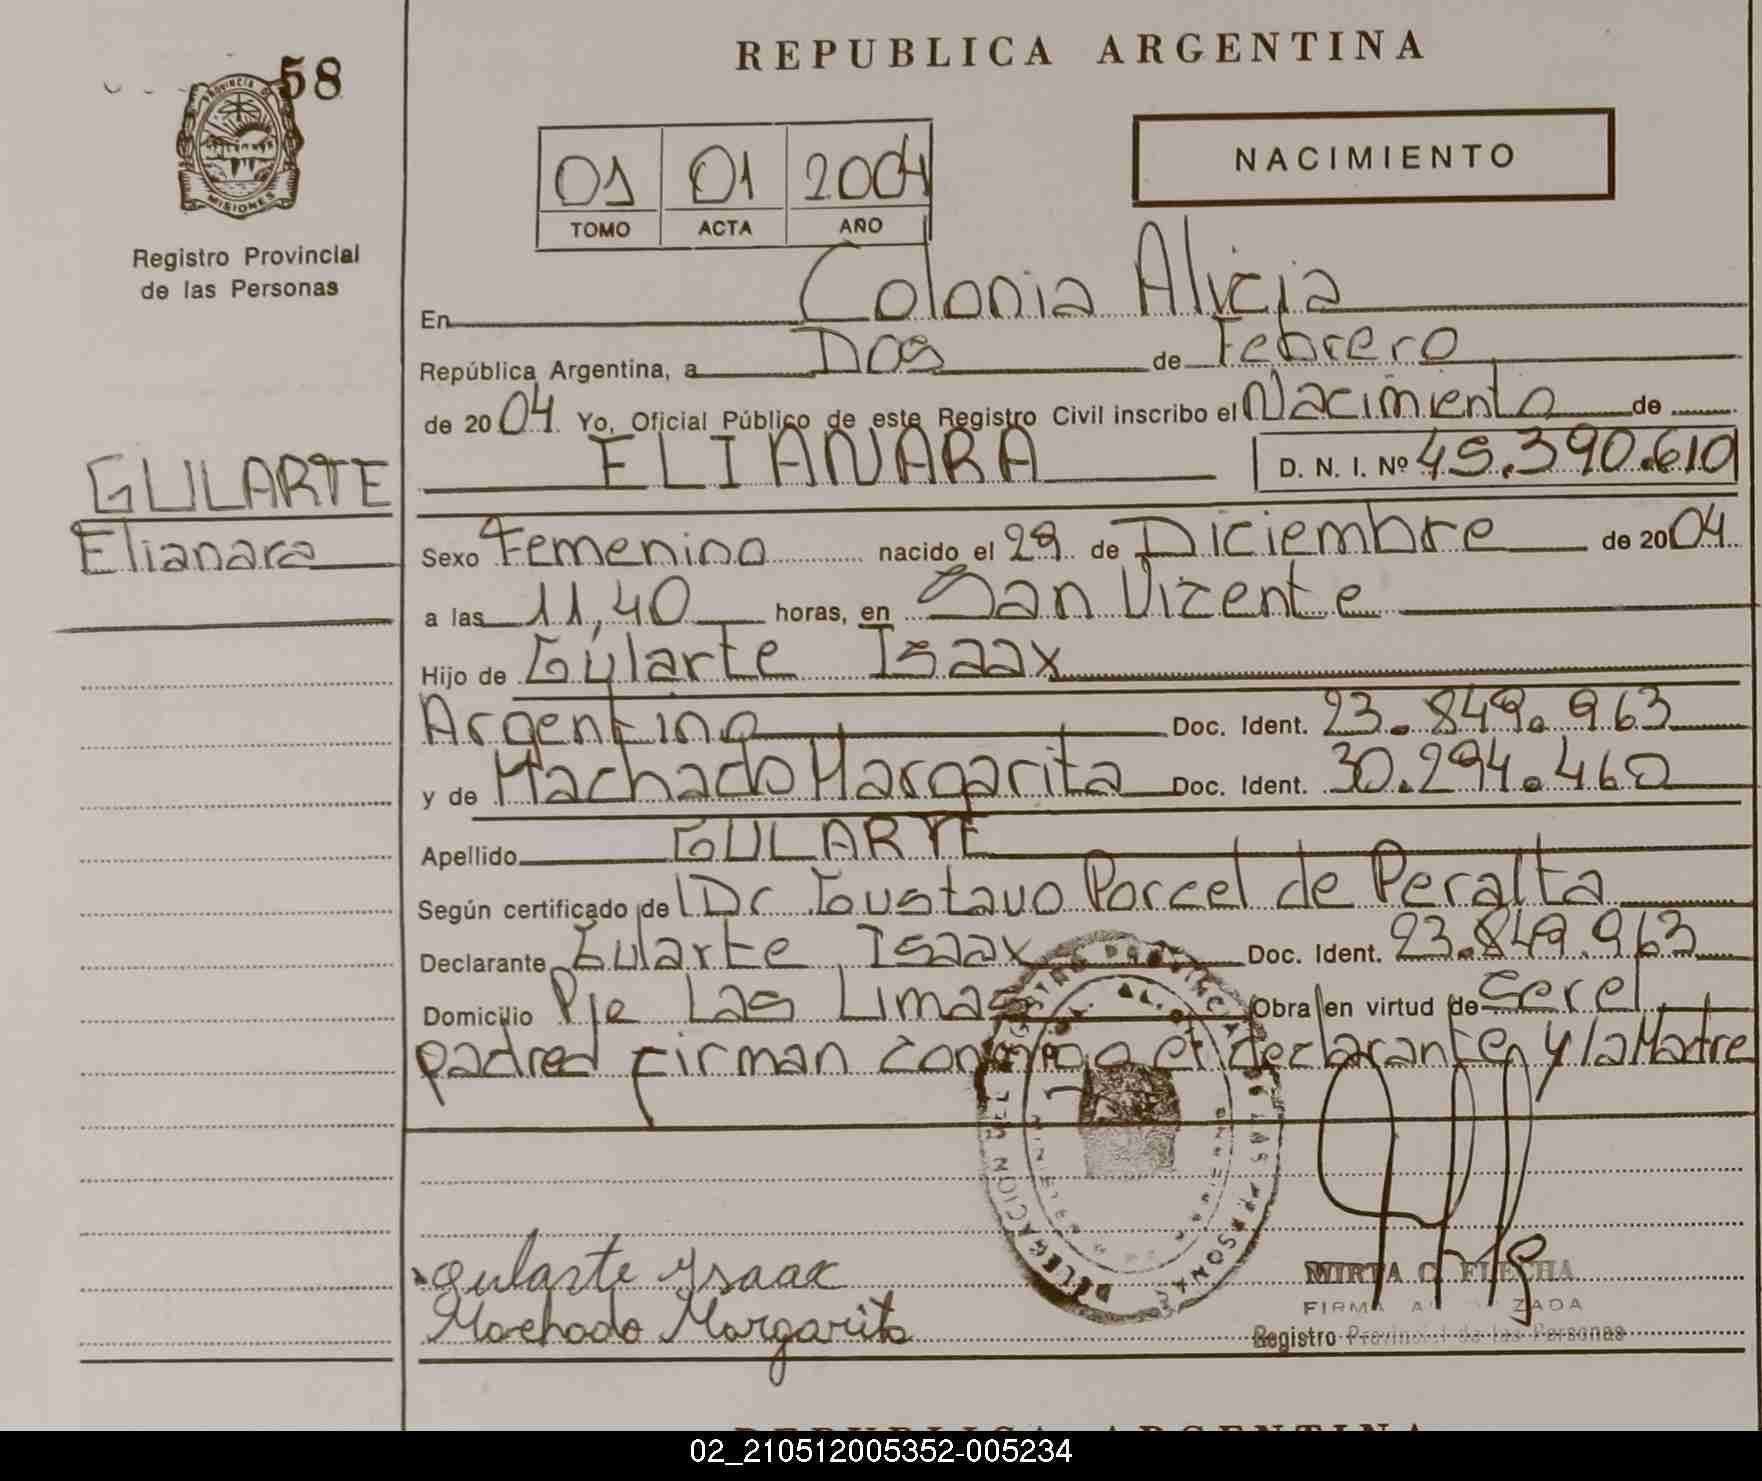 58
PROVINCIA DE
MISIONES
Registro Provincial
de las Personas
REPUBLICA ARGENTINA
01 01 2004
TOMO ACTA AÑO
NACIMIENTO
En Colonia Alicia
República Argentina, a Dos de Febrero
de 2004 Yo, Oficial Público de este Registro Civil inscribo el Nacimiento de
ELIANARA D. N. I. Nº 45.390.610
GULARTE
Elianara
Sexo Femenino nacido el 29 de Diciembre de 2004
a las 11,40 horas, en San Vizente
Hijo de Gularte Isaax
Argentino Doc. Ident. 23.849.963
y de Machado Margarita Doc. Ident. 30.294.460
Apellido GULARTE
Según certificado de Dr Gustavo Porcel de Peralta
Declarante Gularte Isaax Doc. Ident. 23.849.963
Domicilio Pje Las Limas Obra en virtud de Ser el
padre firman el declarante y la Madre
DELEGACION
Gularte Ysaax
Machado Margarita
MIRTA C. FLECHA
FIRMA
Registro Provincial de las Personas
REPUBLICA ARGENTINA
02_210512005352-005234